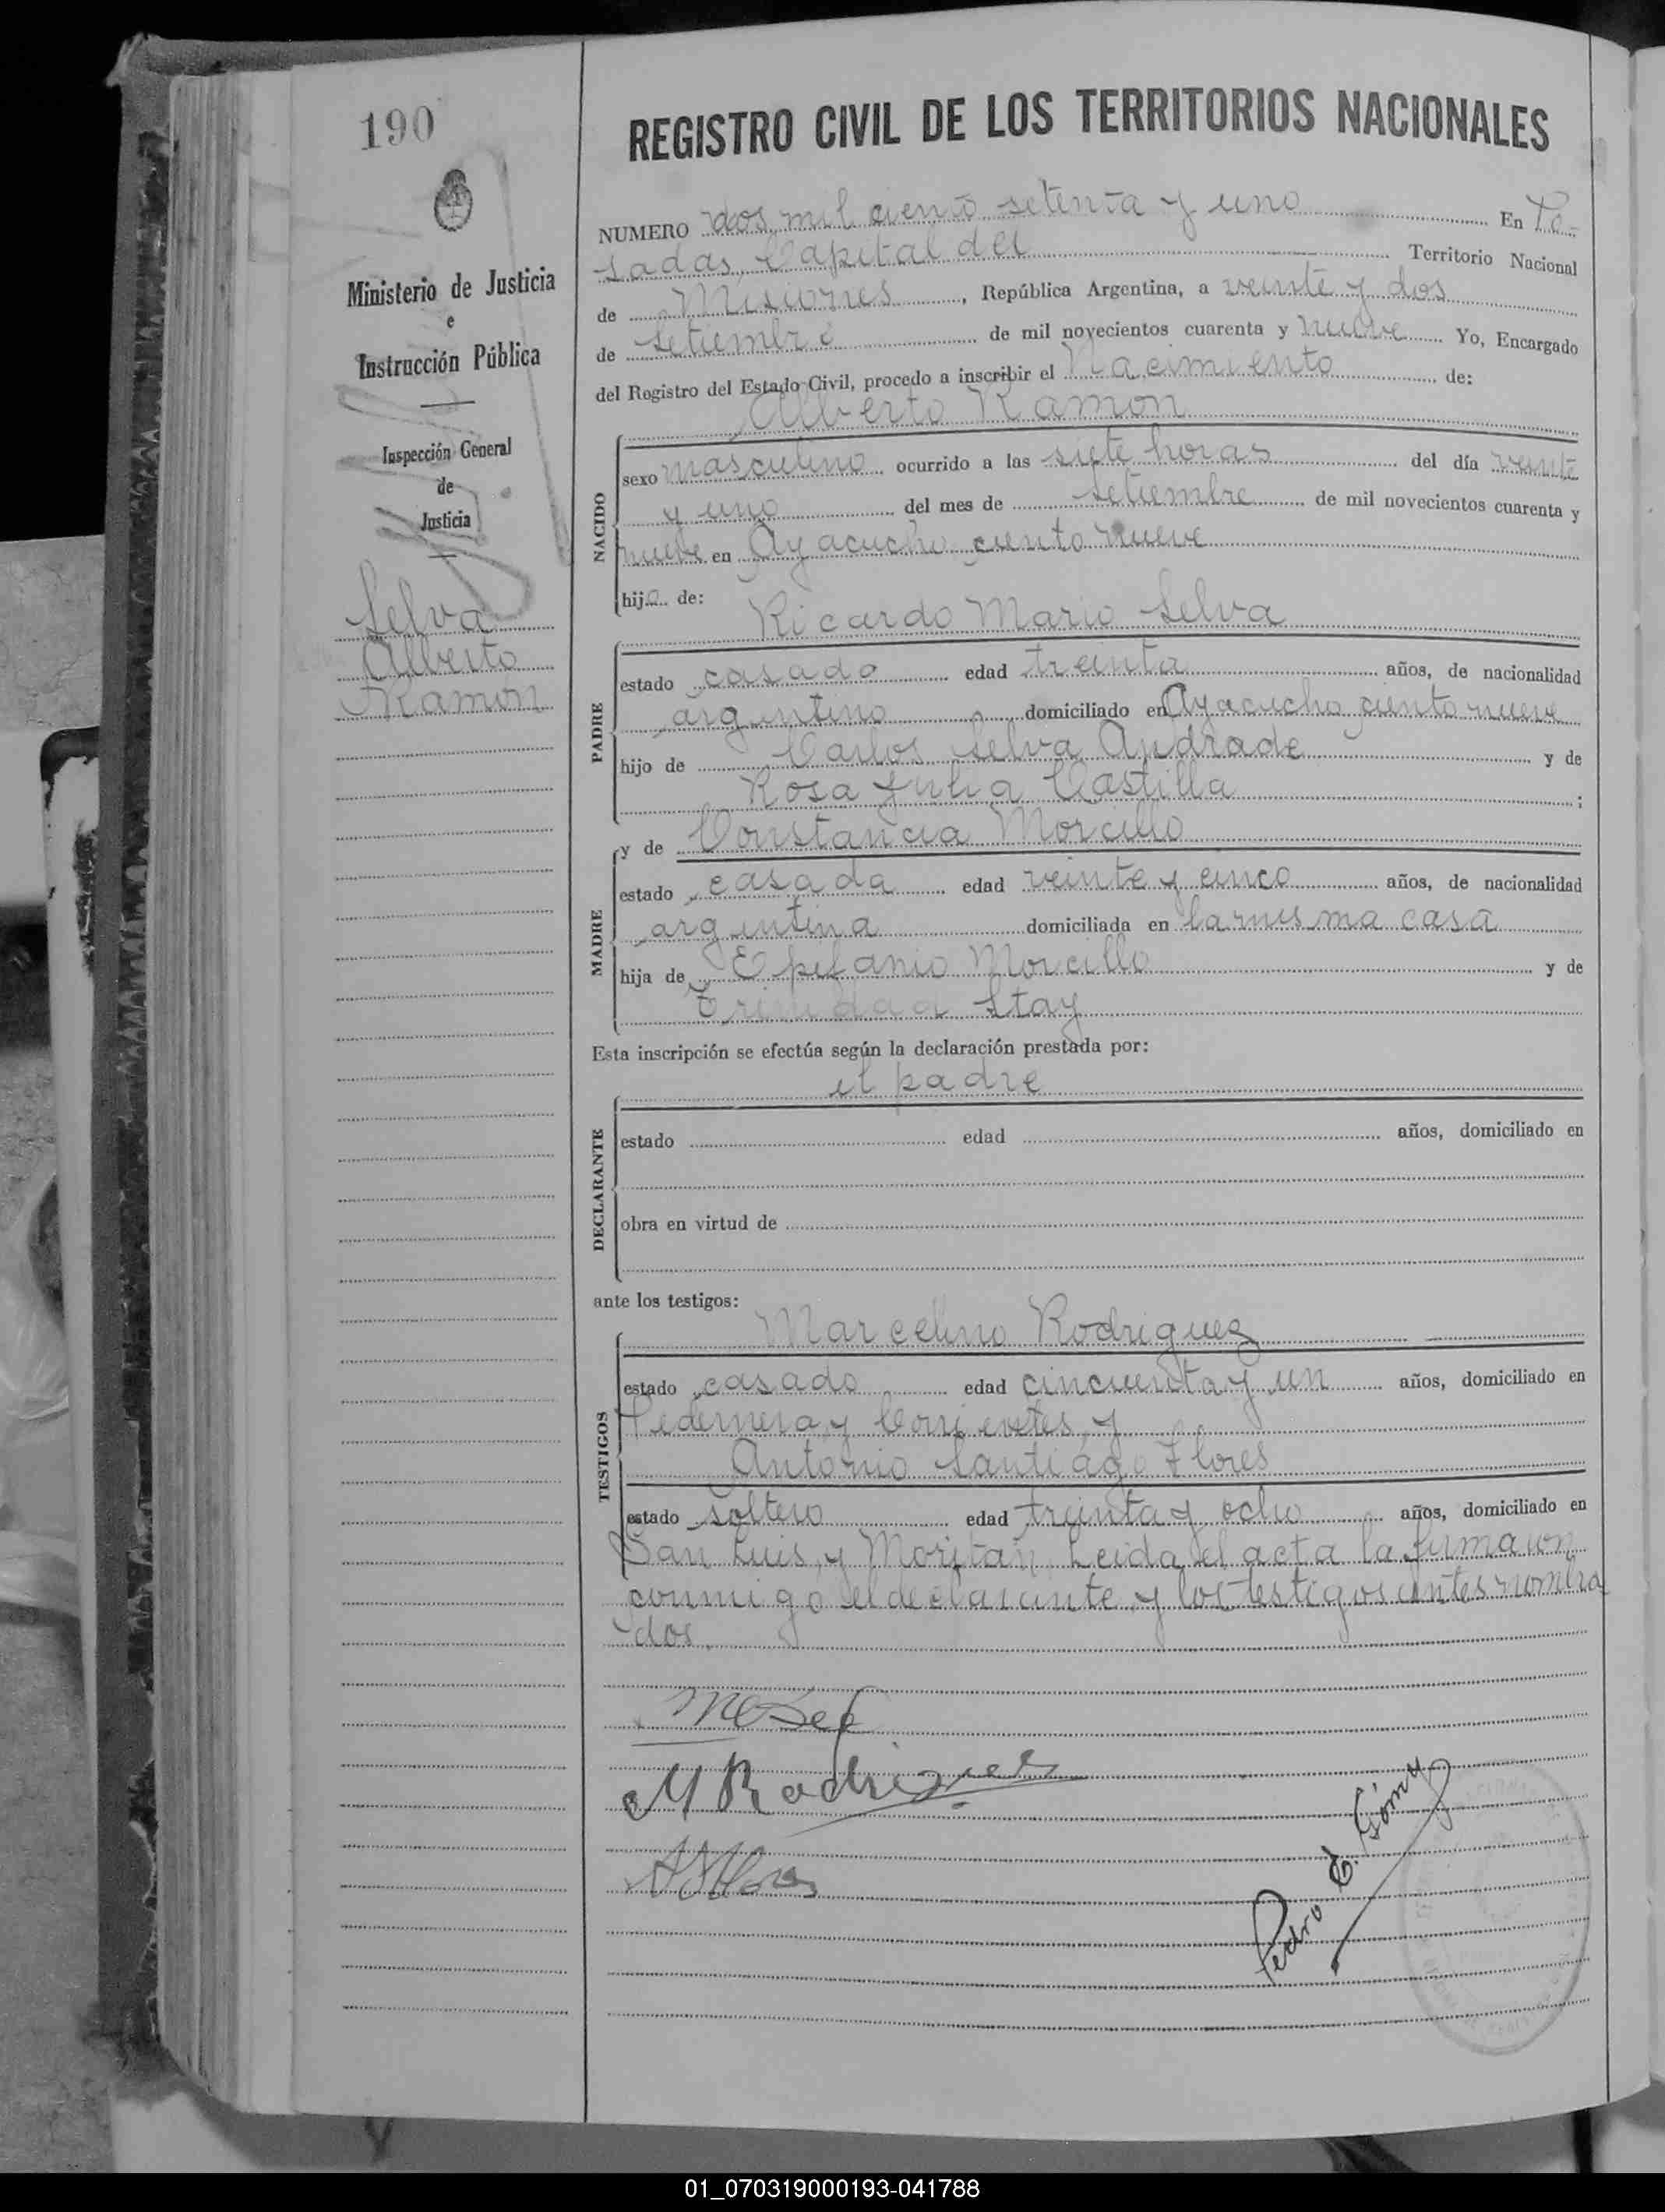 190
REGISTRO CIVIL DE LOS TERRITORIOS NACIONALES
Ministerio de Justicia
e
Instrucción Pública
Inspección General
de
Justicia
Selva
Alberto
Ramon
NUMERO dos mil ciento setenta y uno En Po-
sadas, Capital del Territorio Nacional
de Misiones, República Argentina, a veinte y dos
de Setiembre de mil novecientos cuarenta y nueve Yo, Encargado
del Registro del Estado Civil, procedo a inscribir el Nacimiento de:
Alberto Ramon
NACIDO
sexo masculino ocurrido a las siete horas del día veinte
y uno del mes de setiembre de mil novecientos cuarenta y
nueve en Ayacucho ciento nueve
hijo de:
Ricardo Mario Selva
PADRE
estado casado edad treinta años, de nacionalidad
argentino domiciliado en Ayacucho ciento nueve
hijo de Carlos Selva Andrade y de
Rosa Julia Castilla ;
MADRE
y de Constancia Morcillo
estado casada edad veinte y cinco años, de nacionalidad
argentina domiciliada en la misma casa
hija de Epifanio Morcillo y de
Trinidad Stay
Esta inscripción se efectúa según la declaración prestada por:
el padre
DECLARANTE
estado edad años, domiciliado en
obra en virtud de
ante los testigos:
TESTIGOS
Marcelino Rodriguez
estado casado edad cincuenta y un años, domiciliado en
Pedernera y Corrientes, y
Antonio Santiago Flores
estado soltero edad treinta y ocho años, domiciliado en
San Luis y Moritan Leida el acta la firmaron
conmigo el declarante y los testigos antes nombra
dos.
M Rodriguez
A S Flores
Pedro E. Gómez
01_070319000193-041788